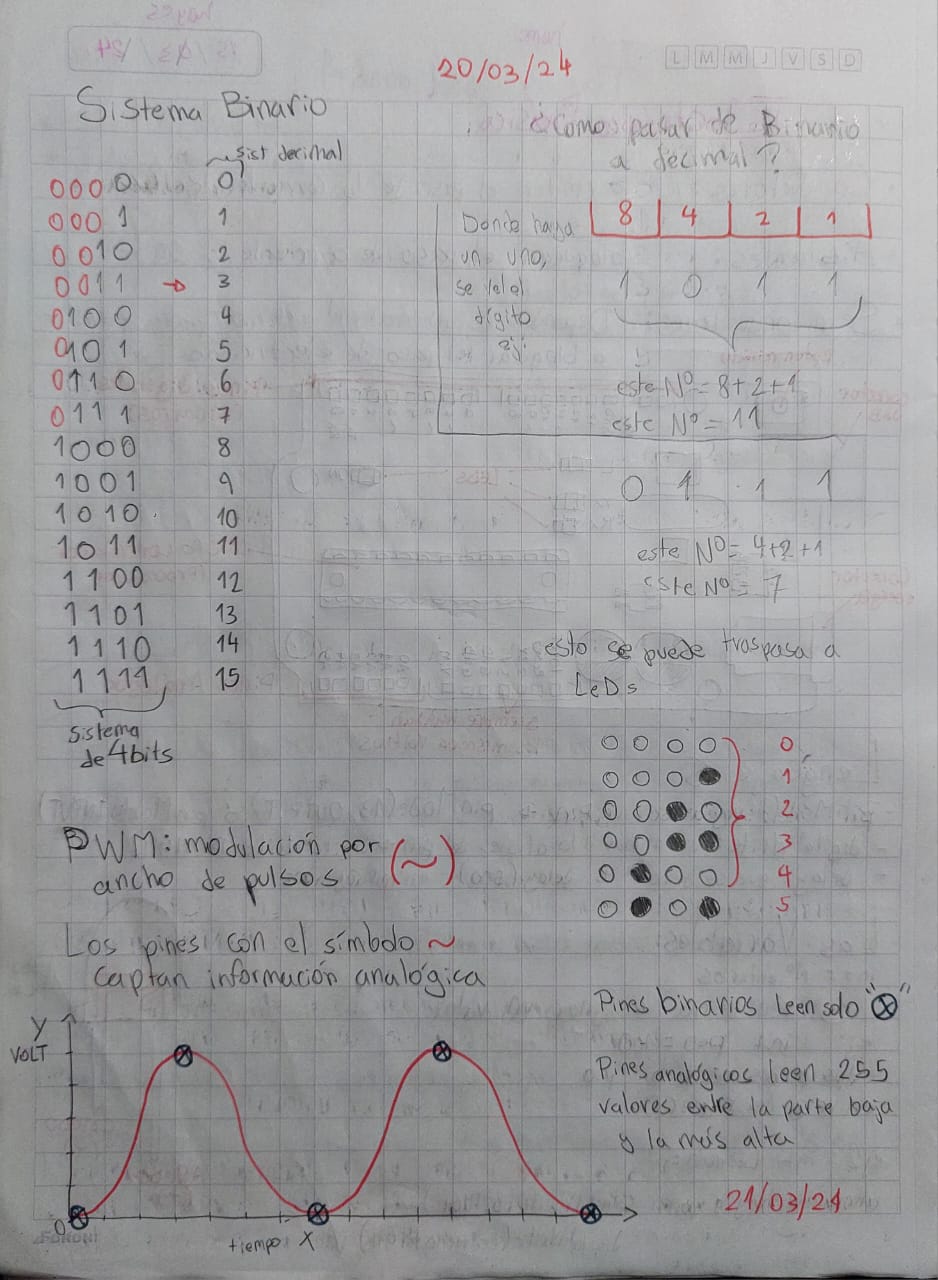 20/03/24
L M M J V S D
Sistema Binario
sist decimal
0000 0
0001 1
0010 2
0011 → 3
0100 4
0101 5
0110 6
0111 7
1000 8
1001 9
1010 10
1011 11
1100 12
1101 13
1110 14
1111 15
Sistema
de 4bits
¿Como pasar de Binario
a decimal?
Donde haya
un uno,
se
digito
8 4 2 1
1 0 1 1
este Nº = 8+2+1
este Nº = 11
0 1 1 1
este Nº = 4+2+1
este Nº = 7
esto se puede traspasa a
LeDs
0
1
2
3
4
5
PWM: modulación por
ancho de pulsos (~)
Los pines con el símbolo ~
Captan información analógica
Pines binarios Leen solo "⊗"
Pines analógicos leen 255
valores entre la parte baja
y la más alta
Y
VOLT
0
tiempo X
21/03/24